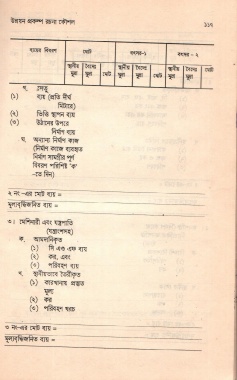 উন্নয়ন প্রকল্প রচনা কৌশল ১১৭
ব্যয়ের বিবরণ মোট বৎসর-১ বৎসর - ২
স্থানীয় বৈদেঃ স্থানীয় বৈদেঃ মোট স্থানীয় বৈদেঃ মোট
মুদ্রা মুদ্রা মুদ্রা মুদ্রা মুদ্রা মুদ্রা
গ. সেতু
(১) ব্যয় (প্রতি দীর্ঘ
মিটারে)
(২) ভিত্তি স্থাপন ব্যয়
(৩) উঠানের উপরে
নির্মাণ ব্যয়
ঘ. অন্যান্য নির্মাণ কাজ
(নির্মাণ কাজে ব্যবহৃত
নির্মাণ সামগ্রীর পূর্ণ
বিবরণ পরিশিষ্ট 'ক'
-তে দিন)
২ নং-এর মোট ব্যয় =
মূল্যবৃদ্ধিজনিত ব্যয় =
৩। মেশিনারী এবং যন্ত্রপাতি
(যন্ত্রাংশসহ)
ক. আমদানিকৃত
(১) সি এণ্ড এফ ব্যয়
(২) কর, এবং
(৩) পরিবহণ ব্যয়
খ. স্থানীয়ভাবে তৈরীকৃত
(১) কারখানায় প্রস্তুত
মূল্য
(২) কর
(৩) পরিবহণ খরচ
৩ নং-এর মোট ব্যয় =
মূল্যবৃদ্ধিজনিত ব্যয় =